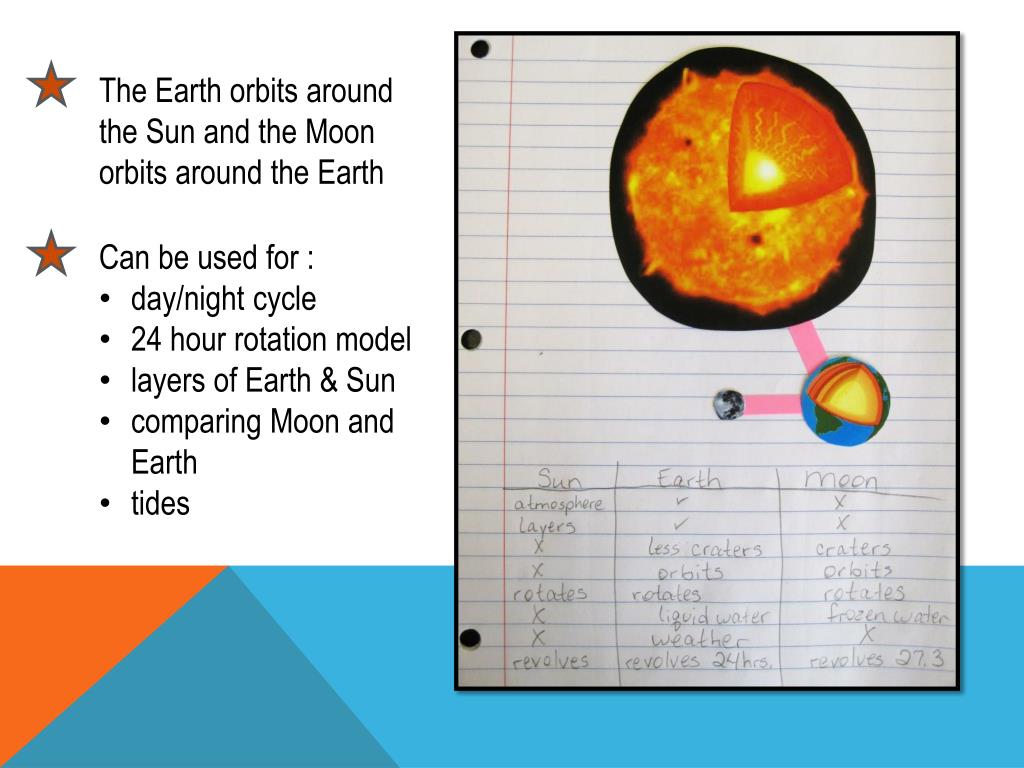 The Earth orbits around
the Sun and the Moon
orbits around the Earth
Can be used for :
• day/night cycle
• 24 hour rotation model
• layers of Earth & Sun
• comparing Moon and
Earth
• tides
Sun Earth Moon
atmosphere ✓ X
layers ✓ X
X less craters craters
X orbits orbits
rotates rotates rotates
X liquid water frozen water
X weather X
revolves revolves 24hrs. revolves 27.3